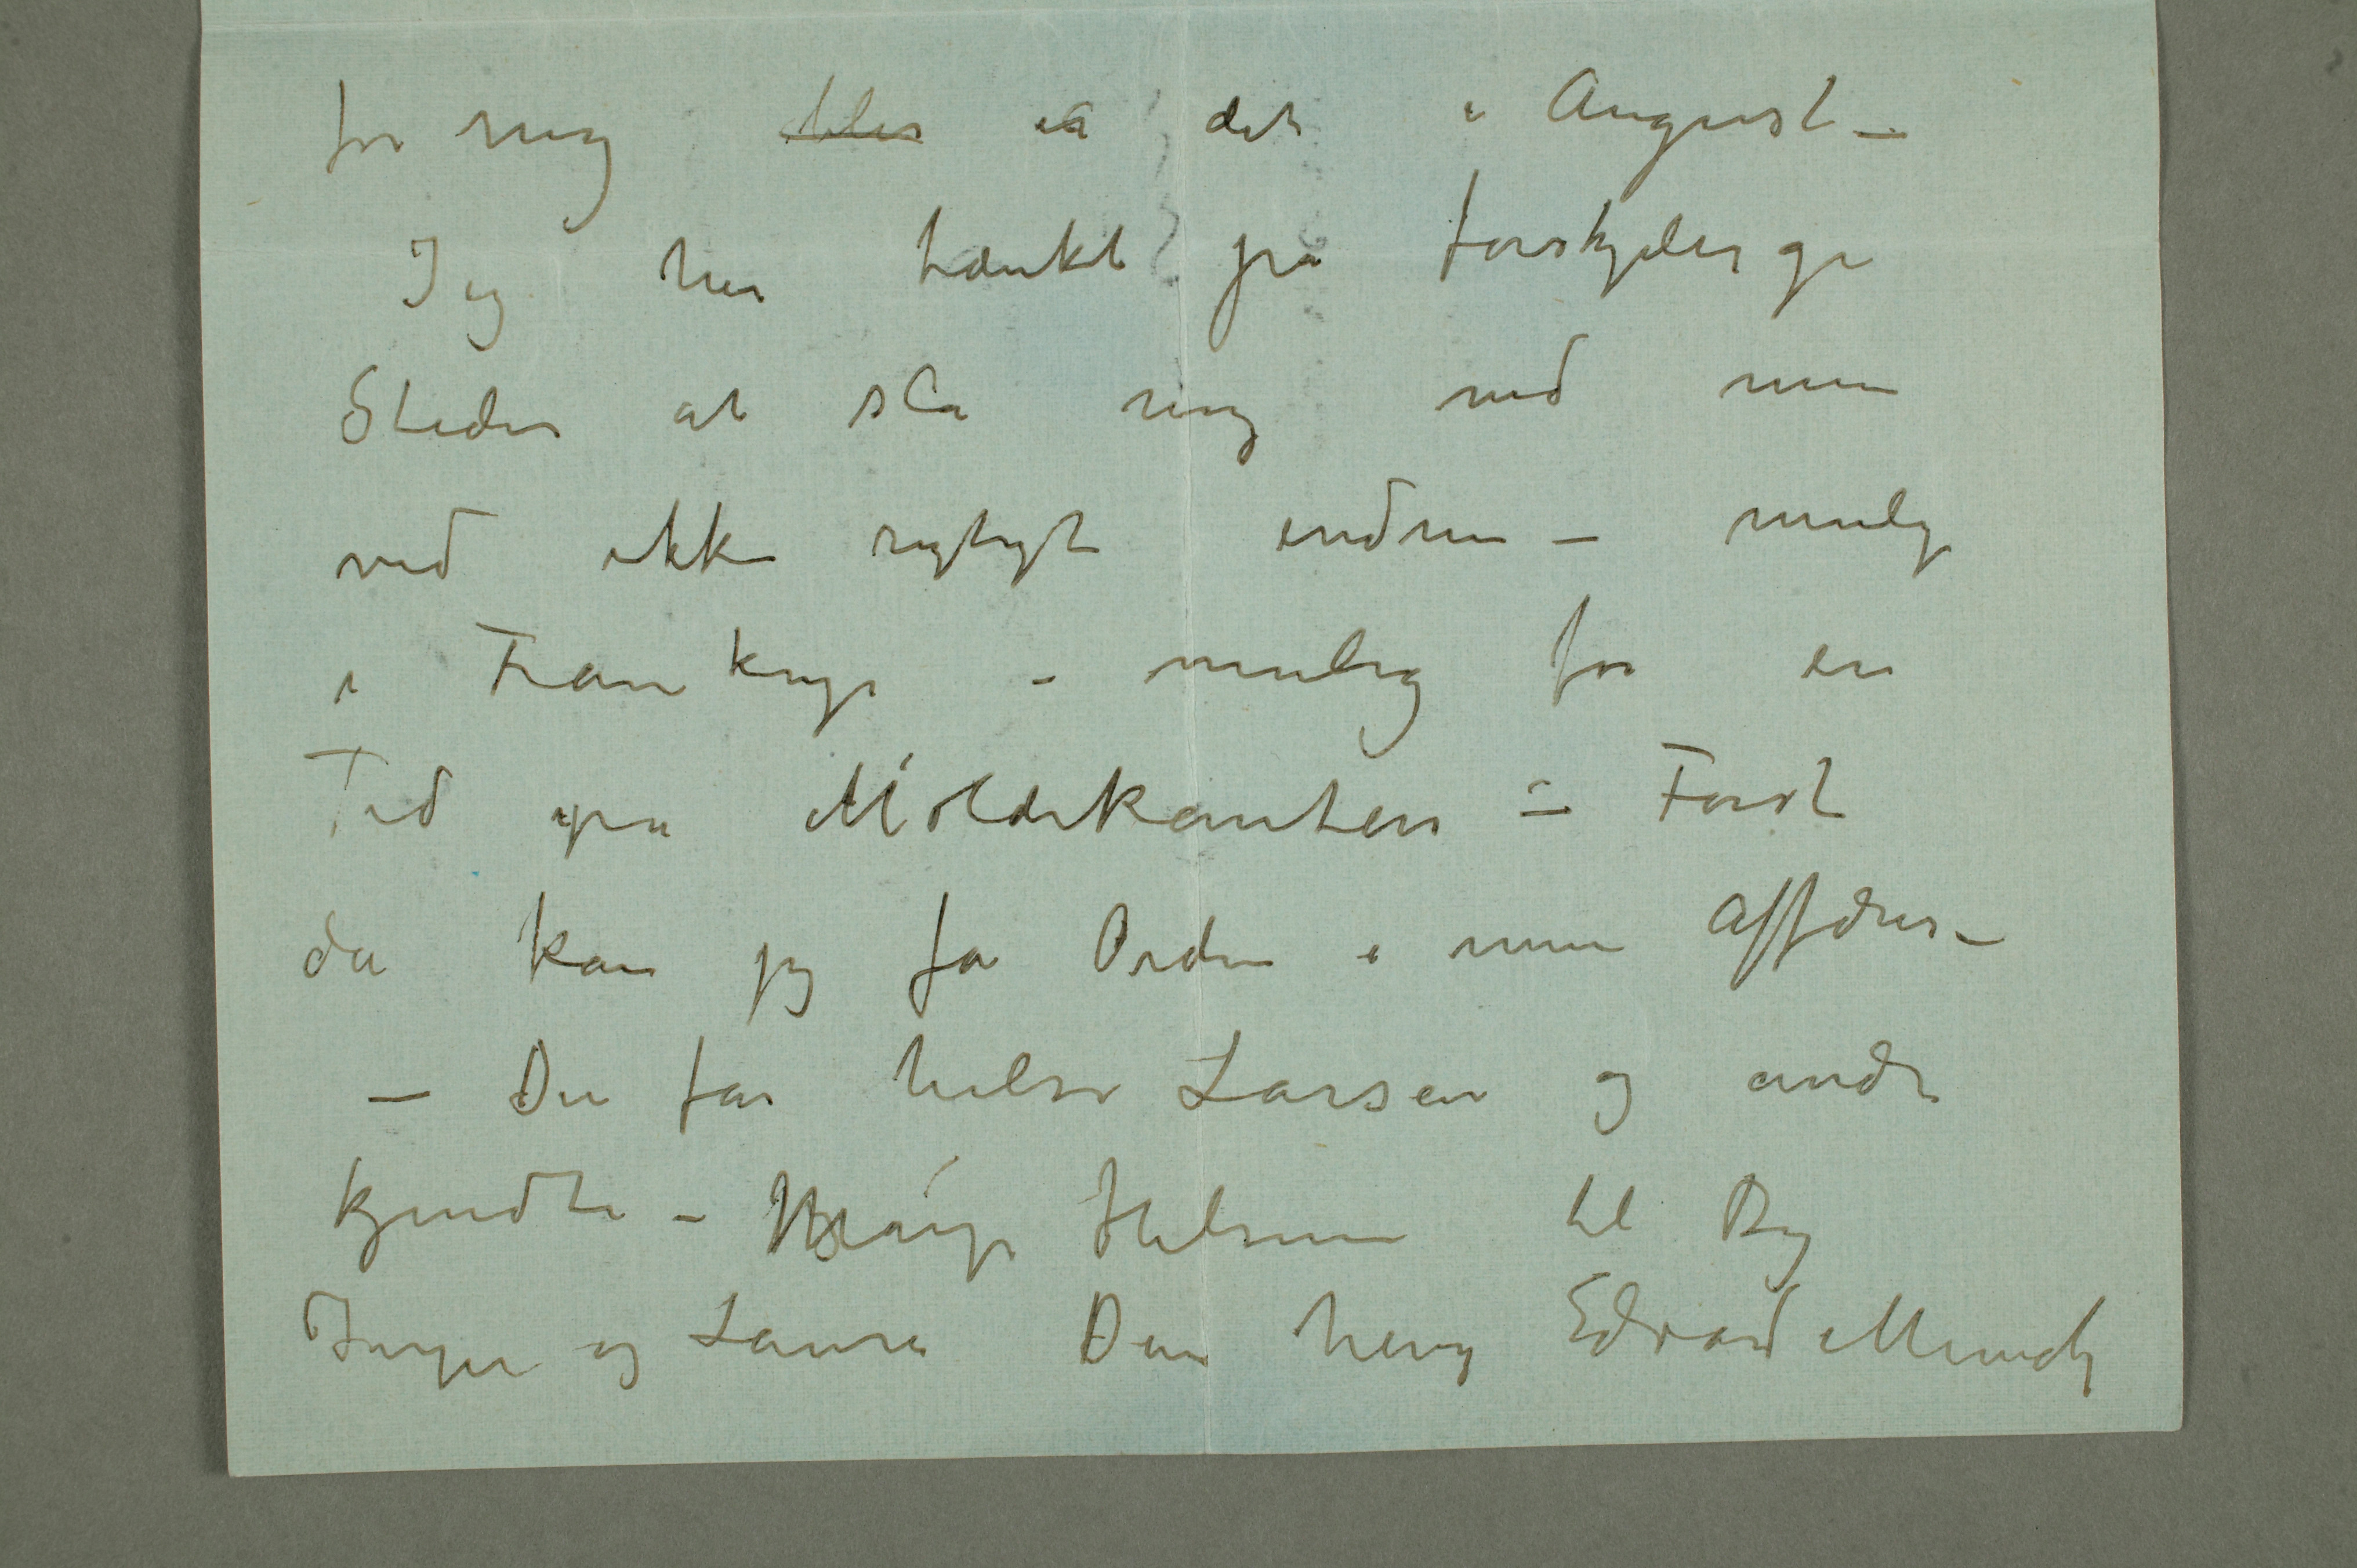 for mig ~~blir~~ er det i August –
Jeg har tænkt på forskjelige
Steder at slå mig ned men
ved ikke rigtigt endnu – mulig
i Frankrige – mulig for en
Tid på Moldekanten – Først
da kan jeg få Orden i mine Affærer –
– Du får hilse Larsen og andre
kjendte – Mange Hilsener til Dig
Inger og Laura Din heng Edvard Munch